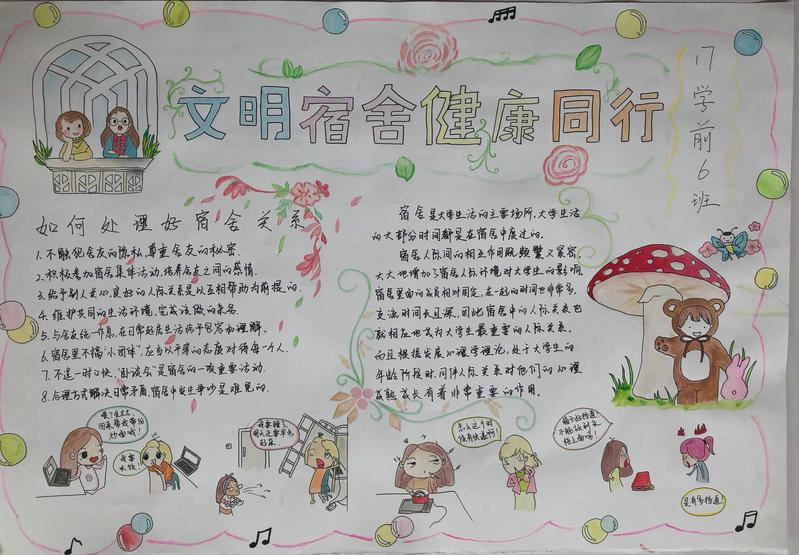 文明宿舍健康同行
17学前6班
如何处理好宿舍关系
1.不触犯舍友的隐私,尊重舍友的秘密.
2.积极参加宿舍集体活动,培养舍友之间的感情.
3.给予别人关心,良好的人际关系是以互相帮助为前提的.
4.维护共同的生活环境,完成该做的杂务.
5.与舍友统一作息,在日常起居生活给予包容和理解.
6.宿舍里不搞"小团体",应当以平等的态度对待每个人.
7.不逞一时口快,"卧谈会"是宿舍的一项重要活动.
8.合理方式解决日常矛盾,宿舍中发生争吵是难免的.
宿舍是大学生活的主要场所,大学生活
的大部分时间都是在宿舍中度过的.
宿舍人际间的相互作用既频繁又紧密,
大大地增加了宿舍人际环境对大学生的影响.
宿舍里面的成员相对固定,在一起的时间也非常多,
交流时间长且深,因此宿舍中的人际关系也
就相应地成为大学生最重要的人际关系.
而且根据发展心理学理论,处于大学生的
年龄阶段时,同伴人际关系对他们的心理
成熟成长有着非常重要的作用.
回来帮我带份
炒面呗!
我要
水饺!
我要睡了,
明天还要早
起床
怎么这个时
候有快递啊!